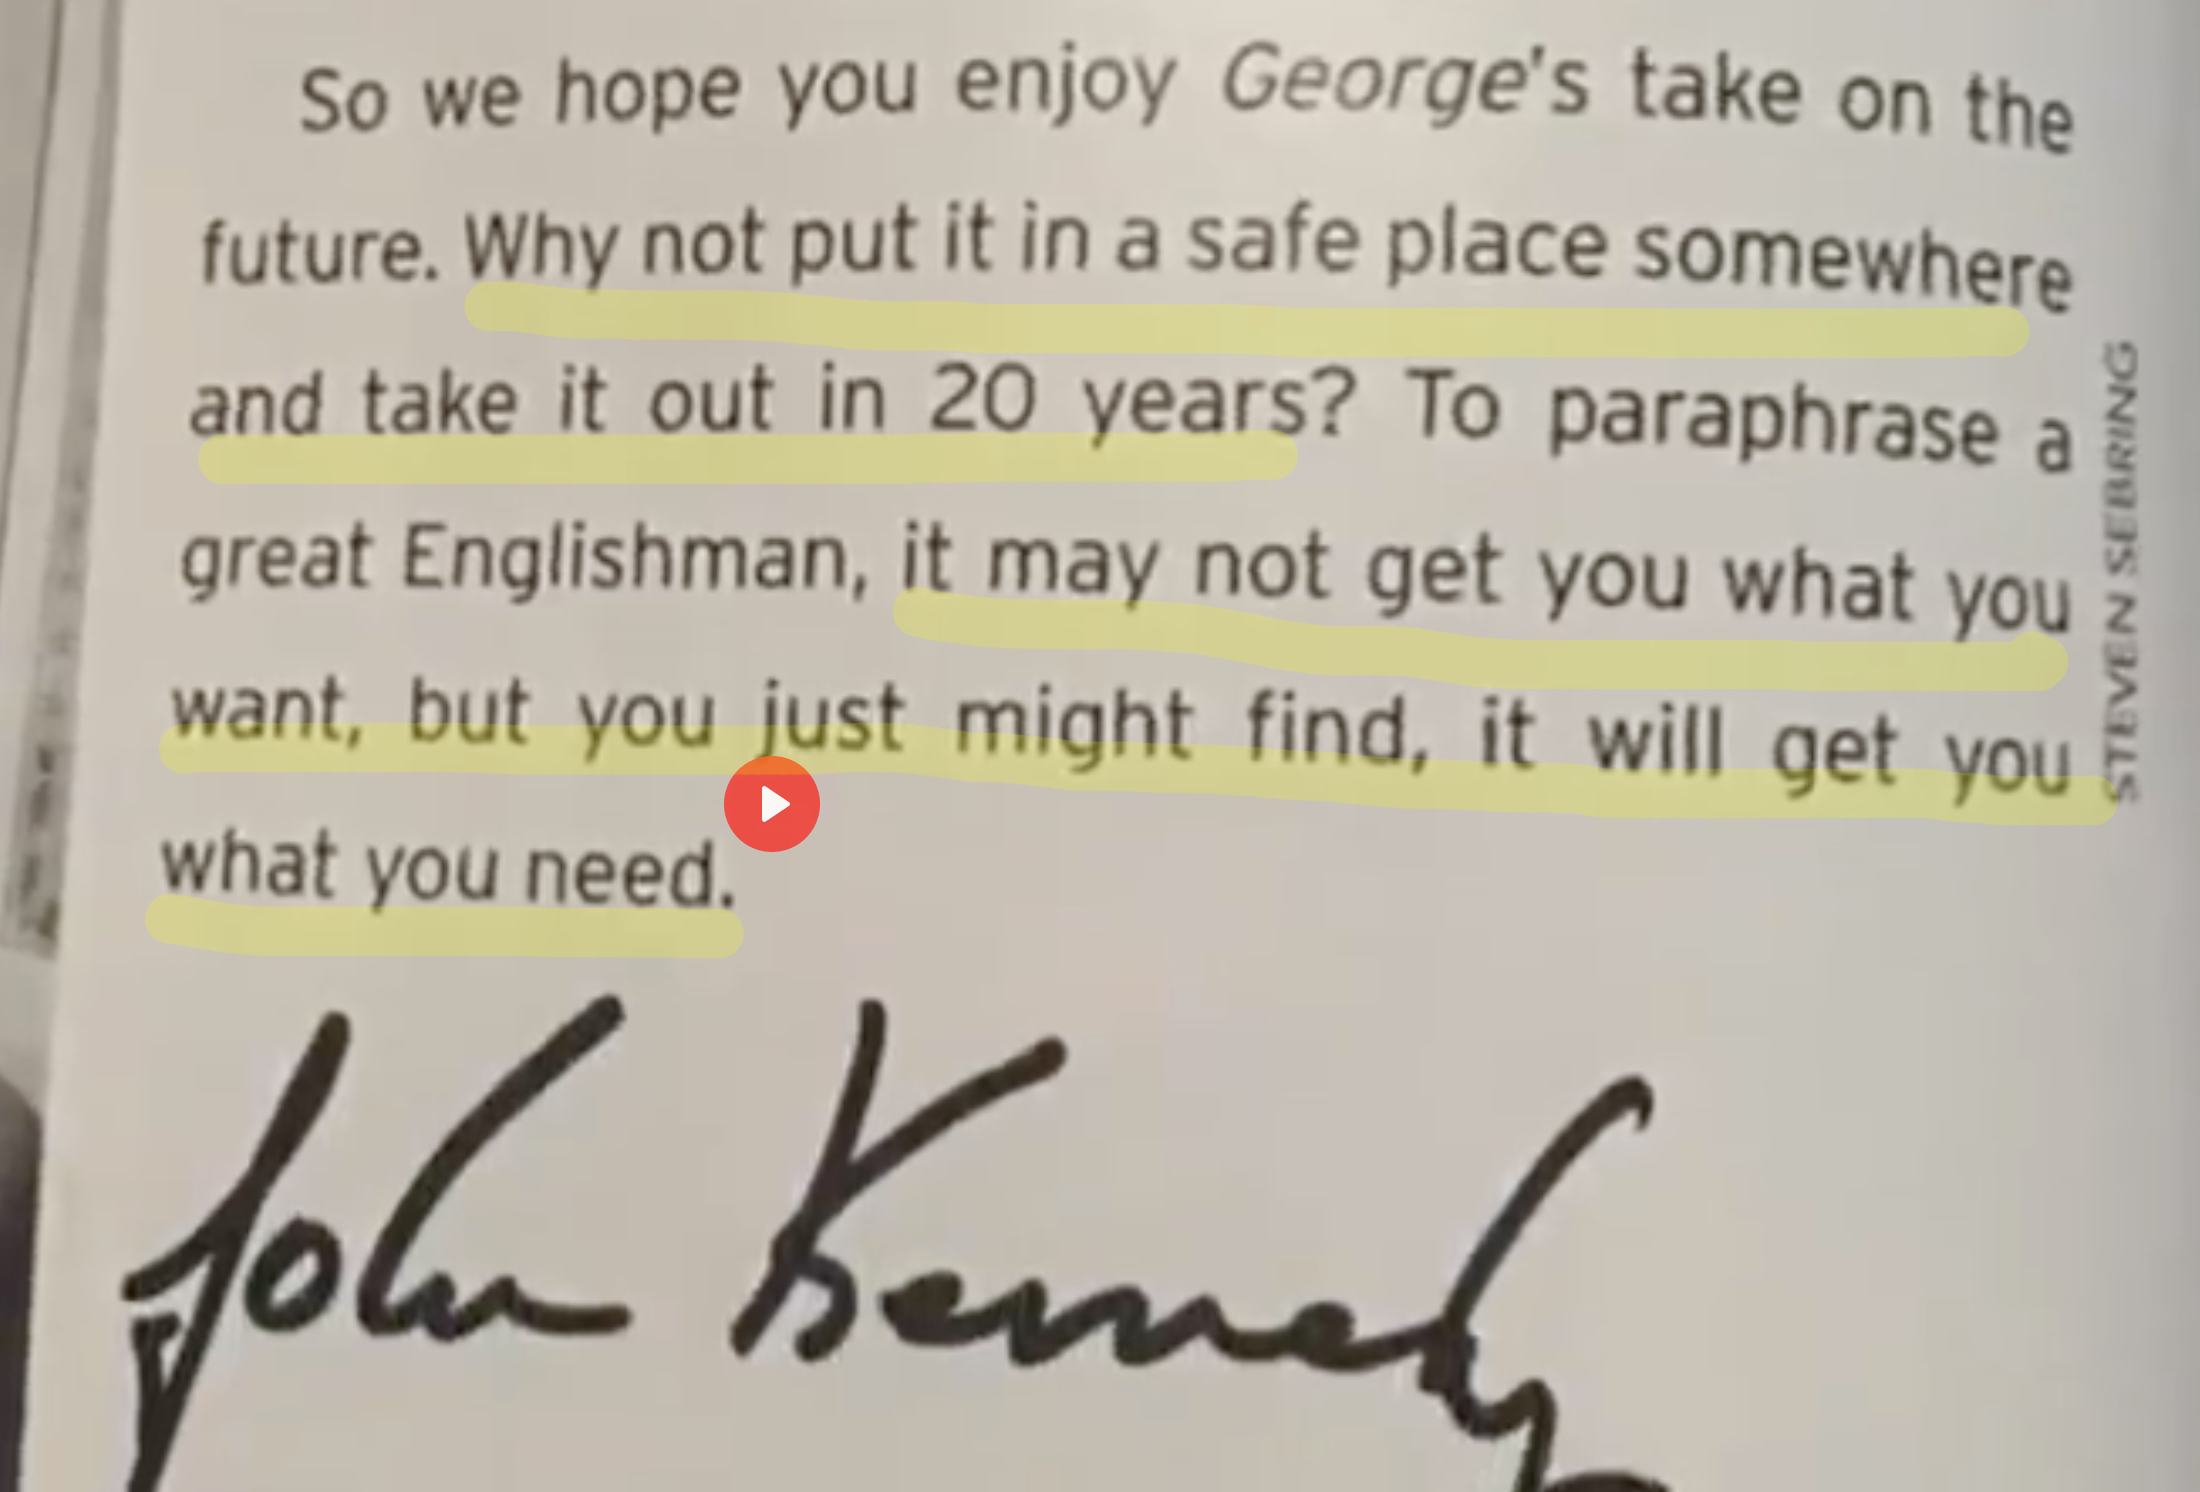 So we hope you enjoy George's take on the
future. Why not put it in a safe place somewhere
and take it out in 20 years? To paraphrase a
great Englishman, it may not get you what you
want, but you just might find, it will get you
what you need.
John Kennedy
STEVEN SEBRING